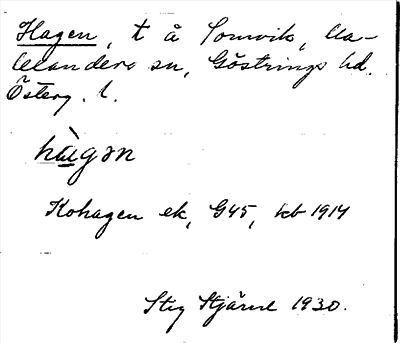 Hagen, t å Somvik, Va-
lelanders sn, Göstrings hd.
Österg. l.
hàgǝn
Kohagen ek, G45, kb 1914
Stig Stjärne 1930.